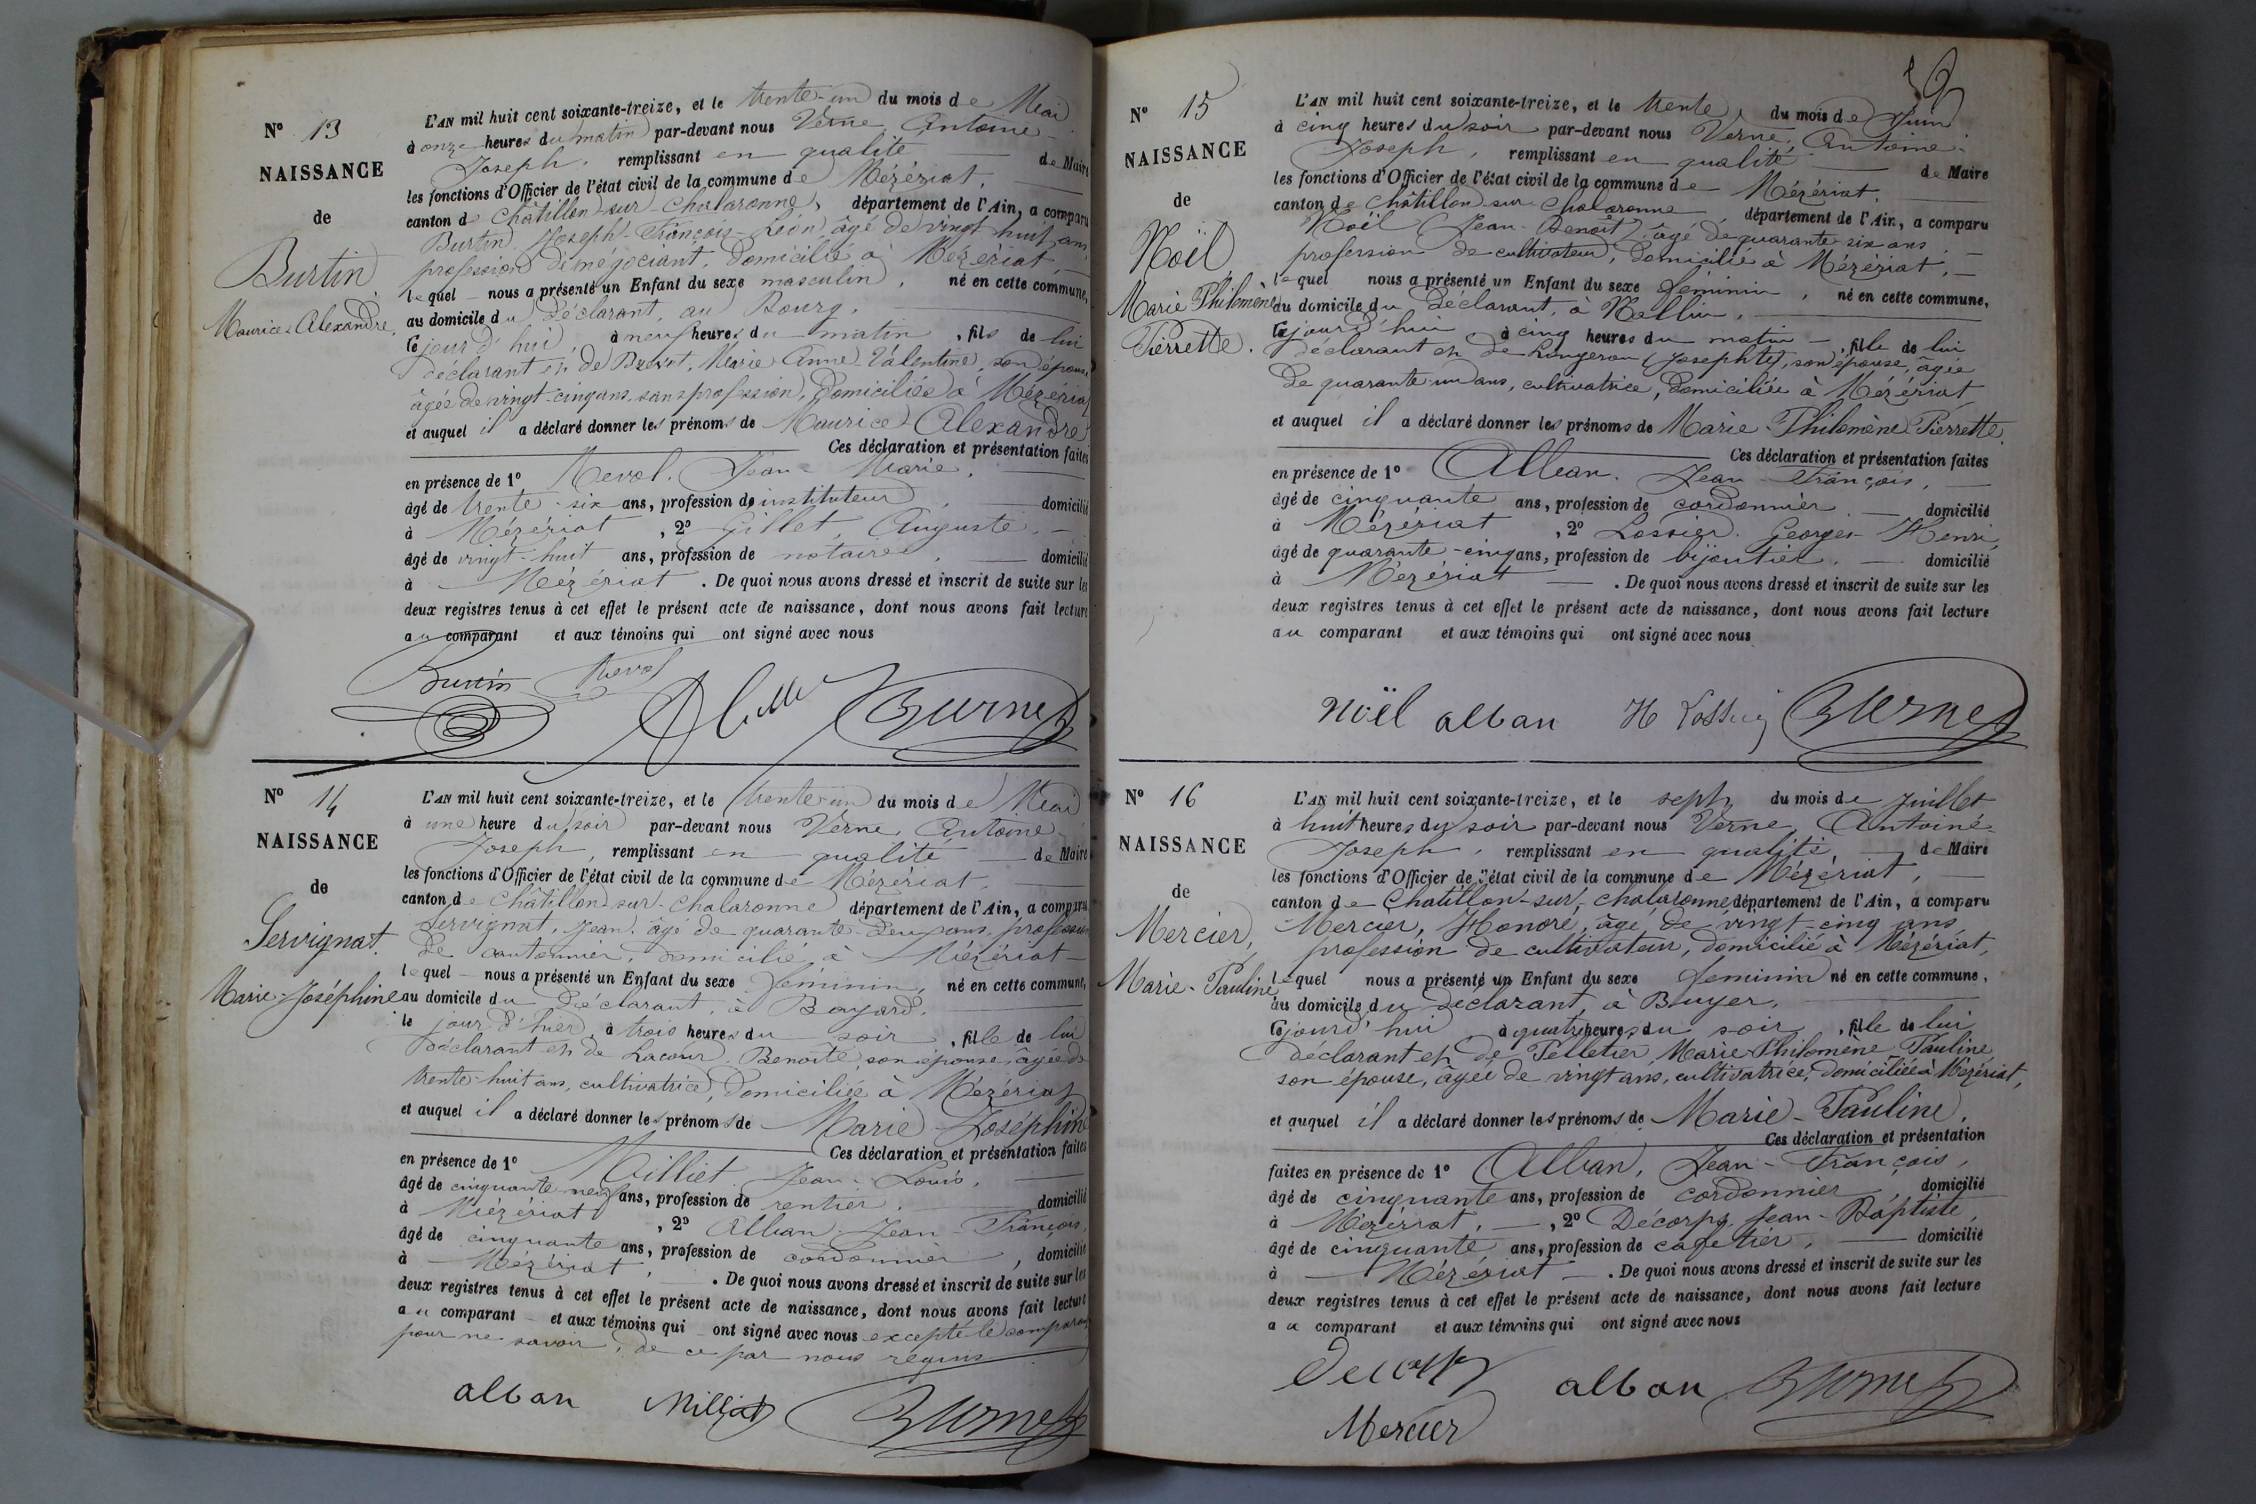 N° 13
NAISSANCE
de
Burtin
Maurice-Alexandre.
L'AN mil huit cent soixante-treize, et le trente-un du mois de Mai
à onze heures du matin par-devant nous Verne, Antoine
Joseph, remplissant en qualité de Maire
les fonctions d'Officier de l'état civil de la commune de Mézériat,
canton de Châtillon-sur-Chalaronne, département de l'Ain, a comparu
Burtin Joseph-François-Léon, âgé de vingt huit ans,
profession de négociant, domicilié à Mézériat,
lequel nous a présenté un Enfant du sexe masculin, né en cette commune,
au domicile du déclarant, au Bourg,
ce jour d'hui, à neuf heures du matin, fils de lui
déclarant et de Marie Anne Valentine, son épouse
âgée de vingt-cinq ans, sans profession, domiciliée à Mézériat
et auquel il a déclaré donner les prénoms de Maurice Alexandre
Ces déclaration et présentation faites
en présence de 1° Revol, Jean-Marie,
âgé de trente-six ans, profession de instituteur, domicilié
à Mézériat, 2° Gillet, Auguste,
âgé de vingt-huit ans, profession de notaire, domicilié
à Mézériat. De quoi nous avons dressé et inscrit de suite sur les
deux registres tenus à cet effet le présent acte de naissance, dont nous avons fait lecture
au comparant et aux témoins qui ont signé avec nous
Burtin Revol AGillet Verne
N° 14
NAISSANCE
de
Servignat.
Marie-Joséphine
L'AN mil huit cent soixante-treize, et le trente-un du mois de Mai
à une heure du soir par-devant nous Verne, Antoine
Joseph, remplissant en qualité de Maire
les fonctions d'Officier de l'état civil de la commune de Mézériat,
canton de Châtillon-sur-Chalaronne département de l'Ain, a comparu
Servignat, Jean, âgé de quarante-deux ans, profession
de cantonnier, domicilié à Mézériat
lequel nous a présenté un Enfant du sexe féminin, né en cette commune,
au domicile du déclarant, à Bayard,
le jour d'hier, à trois heures du soir, fille de lui
déclarant et de Lacour Benoîte, son épouse, âgée de
trente-huit ans, cultivatrice, domiciliée à Mézériat
et auquel il a déclaré donner les prénoms de Marie-Joséphine
Ces déclaration et présentation faites
en présence de 1° Milliet Jean-Louis,
âgé de cinquante neuf ans, profession de rentier, domicilié
à Mézériat, 2° Alban Jean-François,
âgé de cinquante ans, profession de cordonnier, domicilié
à Mézériat. De quoi nous avons dressé et inscrit de suite sur les
deux registres tenus à cet effet le présent acte de naissance, dont nous avons fait lecture
au comparant et aux témoins qui ont signé avec nous excepté le comparant
pour ne savoir, de ce par nous requis
alban Milliet Verne
N° 15
NAISSANCE
de
Noël
Marie Philomène
Pierrette.
L'AN mil huit cent soixante-treize, et le trente du mois de Juin
à cinq heures du soir par-devant nous Verne, Antoine-
Joseph, remplissant en qualité de Maire
les fonctions d'Officier de l'état civil de la commune de Mézériat,
canton de Châtillon-sur-Chalaronne, département de l'Ain, a comparu
Noël (Jean-Benoit) âgé de quarante-six ans
profession de cultivateur, domicilié à Mézériat,
lequel nous a présenté un Enfant du sexe féminin, né en cette commune,
au domicile du déclarant, à
ce jourd'hui à cinq heures du matin, fille de lui
déclarant et de Longeron (Josephte), son épouse, âgée
de quarante-un ans, cultivatrice, domiciliée à Mézériat
et auquel il a déclaré donner les prénoms de Marie Philomène Pierrette.
Ces déclaration et présentation faites
en présence de 1° Alban, Jean-François,
âgé de cinquante ans, profession de cordonnier domicilié
à Mézériat, 2° Lossier, Georges-Henri,
âgé de quarante-cinq ans, profession de bijoutier, domicilié
à Mézériat. De quoi nous avons dressé et inscrit de suite sur les
deux registres tenus à cet effet le présent acte de naissance, dont nous avons fait lecture
au comparant et aux témoins qui ont signé avec nous
Noël alban H Lossier Verne
N° 16
NAISSANCE
de
Mercier,
Marie-Pauline
L'AN mil huit cent soixante-treize, et le sept du mois de Juillet
à huit heures du soir par-devant nous Verne, Antoine-
Joseph, remplissant en qualité de Maire
les fonctions d'Officier de l'état civil de la commune de Mézériat,
canton de Châtillon-sur-Chalaronne département de l'Ain, a comparu
Mercier, Honoré, âgé de vingt-cinq ans
profession de cultivateur, domicilié à Mézériat,
lequel nous a présenté un Enfant du sexe féminin né en cette commune,
au domicile du déclarant, à Bruyer,
ce jourd'hui à quatre heures du soir, fille de lui
déclarant et de Pelletier Marie-Philomène Pauline
son épouse, âgée de vingt ans, cultivatrice, domiciliée à Mézériat,
et auquel il a déclaré donner les prénoms de Marie-Pauline,
Ces déclaration et présentation
faites en présence de 1° Alban, Jean-François,
âgé de cinquante ans, profession de cordonnier domicilié
à Mézériat, 2° Décorps Jean-Baptiste,
âgé de cinquante ans, profession de cafetier, domicilié
à Mézériat. De quoi nous avons dressé et inscrit de suite sur les
deux registres tenus à cet effet le présent acte de naissance, dont nous avons fait lecture
au comparant et aux témoins qui ont signé avec nous
Decorps alban Verne
Mercier